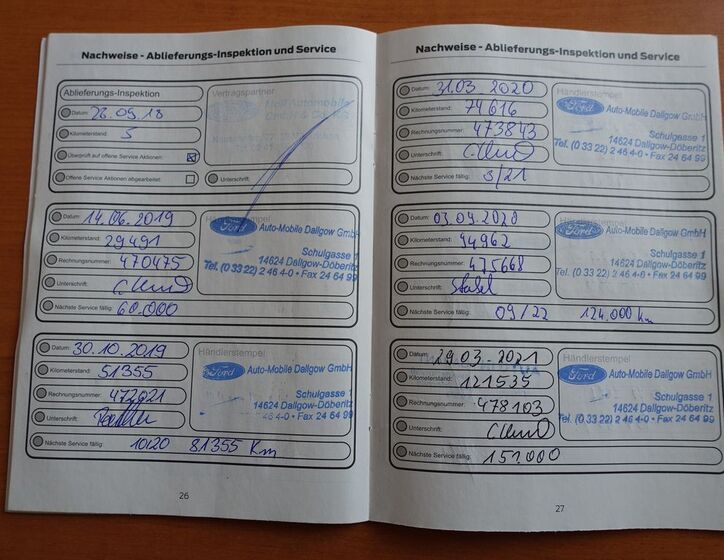 Nachweise - Ablieferungs-Inspektion und Service
Ablieferungs-Inspektion
Datum: 28.09.18
Kilometerstand: 5
Überprüft auf offene Service Aktionen:
Offene Service Aktionen abgearbeitet:
Vertragspartner
Unterschrift:
Datum: 14.06.2019
Kilometerstand: 29491
Rechnungsnummer: 470475
Unterschrift:
Nächste Service fällig: 60.000
Händlerstempel
Ford Auto-Mobile Dallgow GmbH
Schulgasse 1
14624 Dallgow-Döberitz
Tel. (0 33 22) 2 46 4-0 • Fax 24 64 99
Datum: 30.10.2019
Kilometerstand: 51355
Rechnungsnummer: 472021
Unterschrift:
Nächste Service fällig: 10/20 81355 Km
Händlerstempel
Ford Auto-Mobile Dallgow GmbH
Schulgasse 1
14624 Dallgow-Döberitz
46 4-0 • Fax 24 64 99
26
Nachweise - Ablieferungs-Inspektion und Service
Datum: 31.03.2020
Kilometerstand: 74616
Rechnungsnummer: 473843
Unterschrift:
Nächste Service fällig: 3/21
Händlerstempel
Ford Auto-Mobile Dallgow GmbH
Schulgasse 1
14624 Dallgow-Döberitz
Tel. (0 33 22) 2 46 4-0 • Fax 24 64 99
Datum: 03.09.2020
Kilometerstand: 94962
Rechnungsnummer: 475668
Unterschrift:
Nächste Service fällig: 09/22 124.000 km
Händlerstempel
Ford Auto-Mobile Dallgow GmbH
Schulgasse 1
14624 Dallgow-Döberitz
Tel. (0 33 22) 2 46 4-0 • Fax 24 64 99
Datum: 29.03.2021
Kilometerstand: 121535
Rechnungsnummer: 478103
Unterschrift:
Nächste Service fällig: 151.000
Händlerstempel
Ford Auto-Mobile Dallgow GmbH
Schulgasse 1
14624 Dallgow-Döberitz
Tel. (0 33 22) 2 46 4-0 • Fax 24 64 99
27